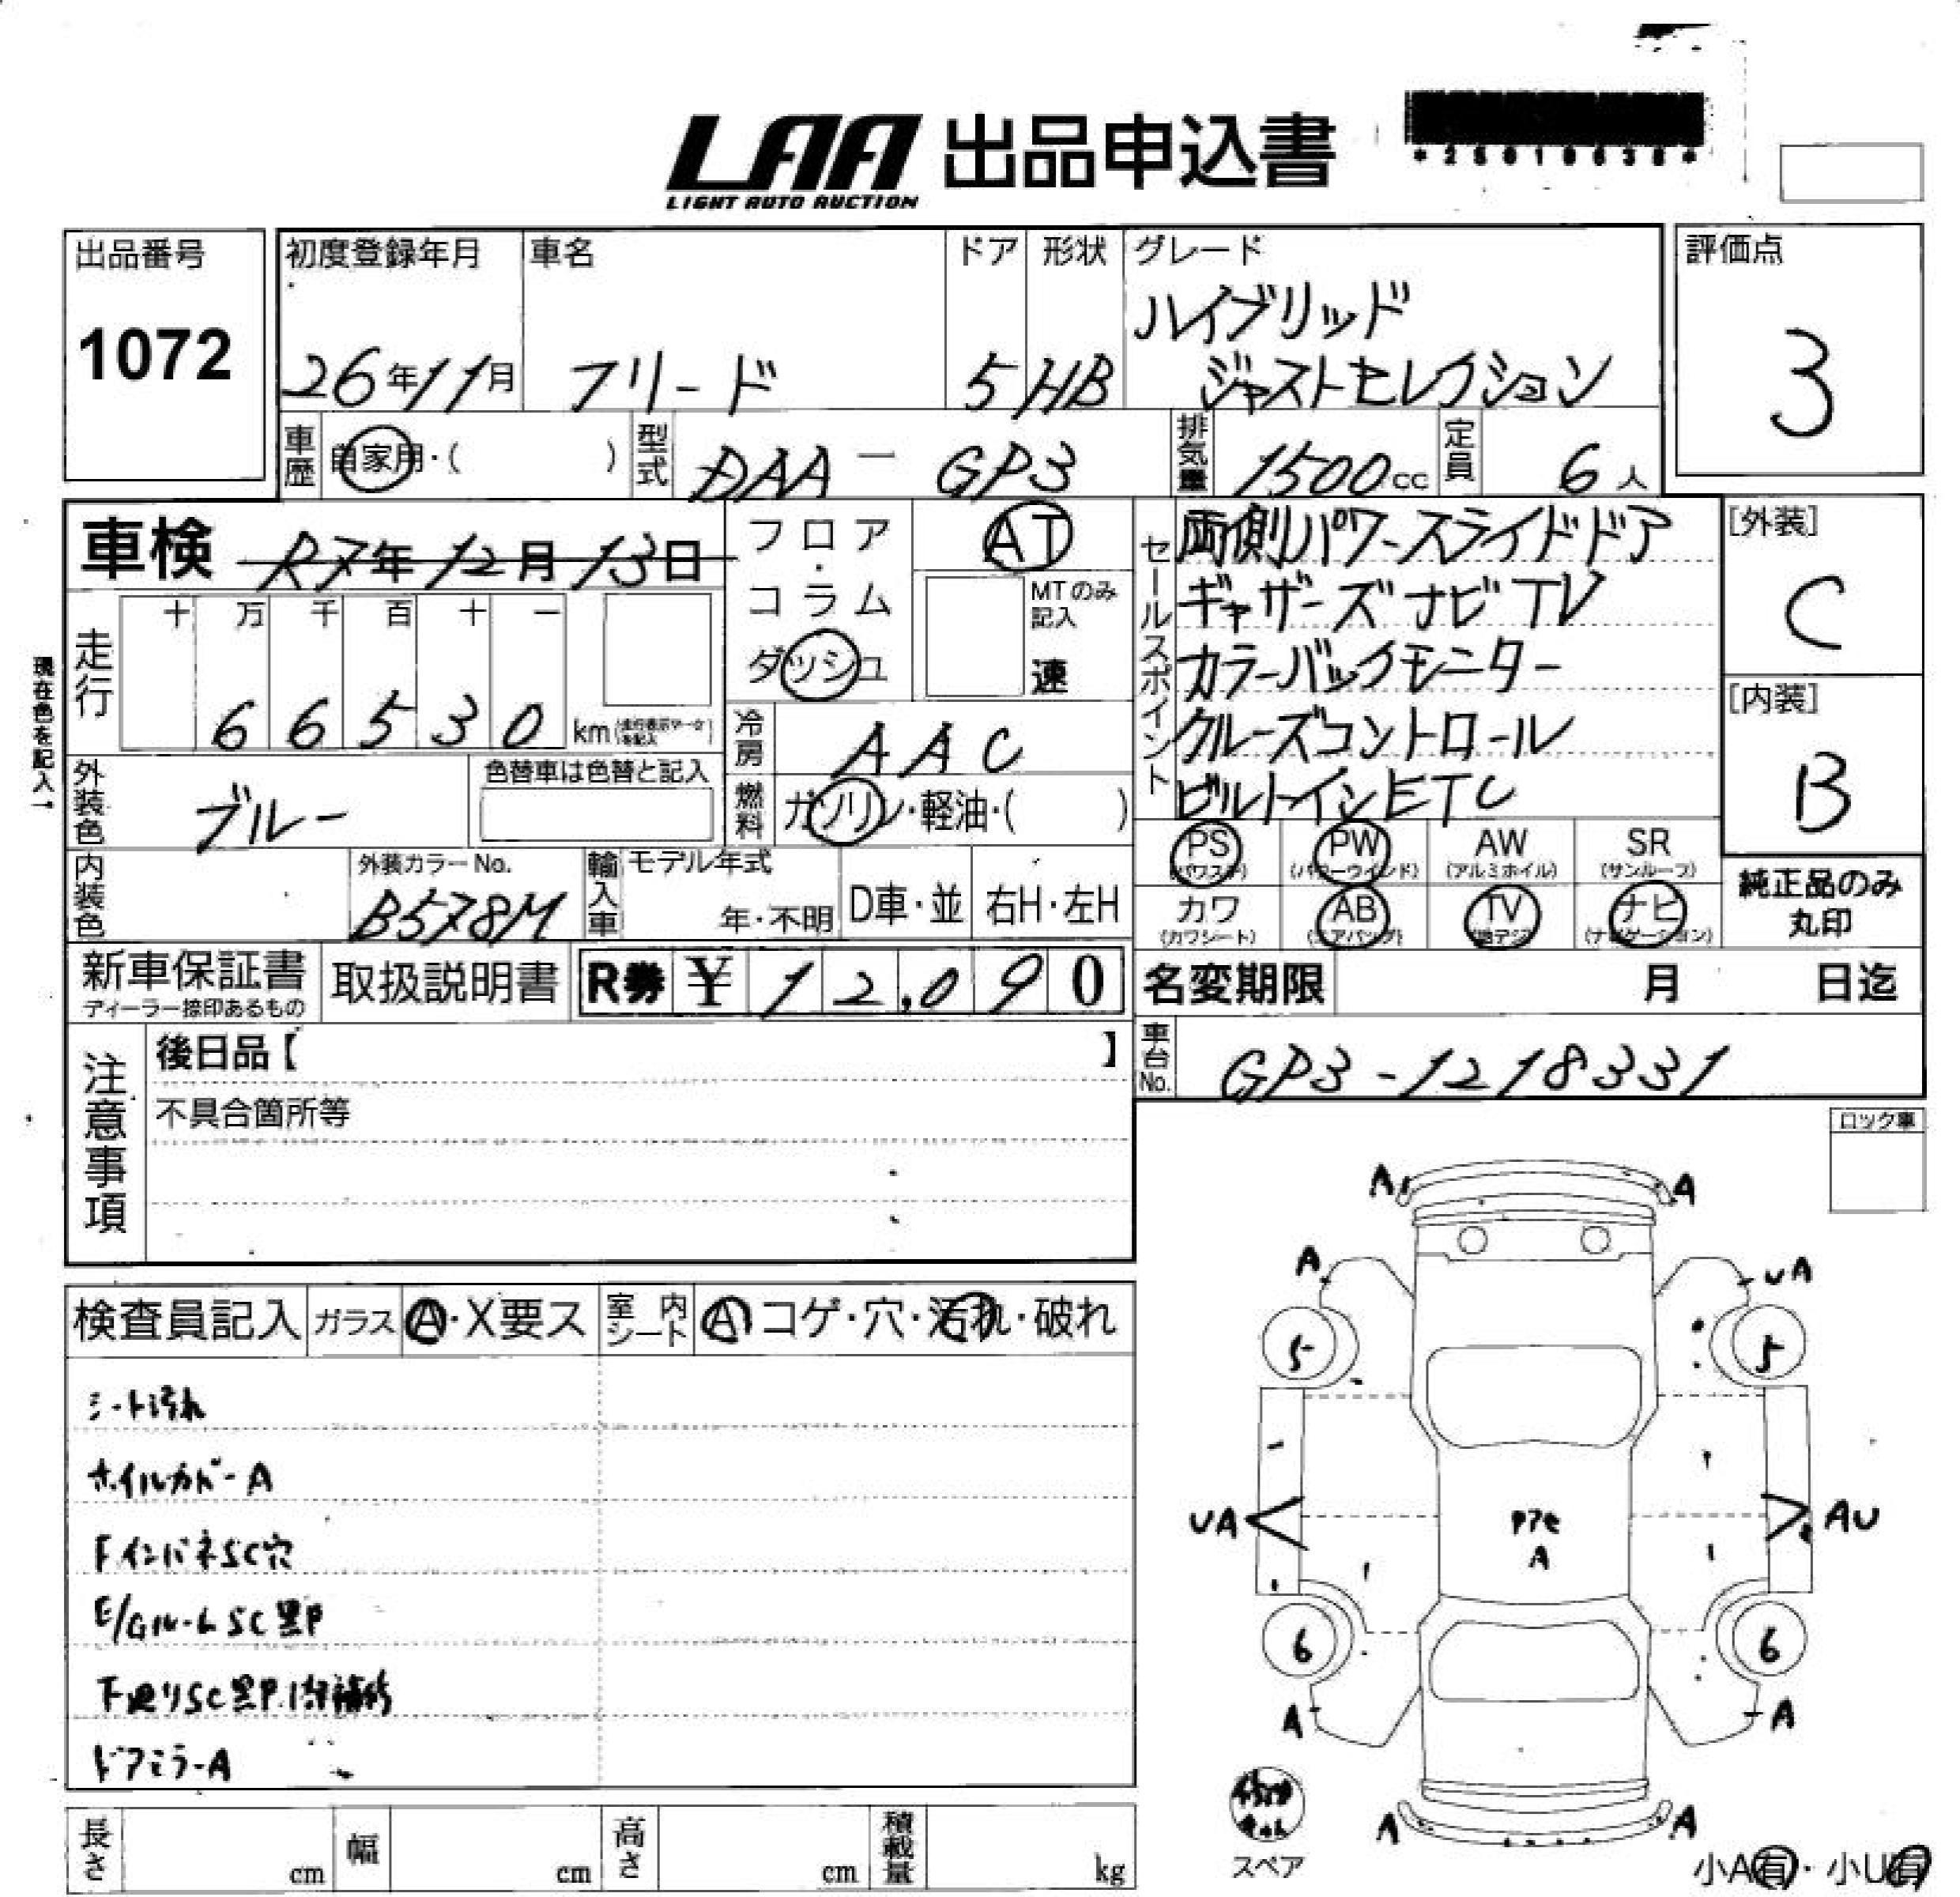 LAA 出品申込書
LIGHT AUTO AUCTION
出品番号
1072
初度登録年月
26年11月
車名
フリード
ドア
5
形状
HB
グレード
ハイブリッド
ジャストセレクション
評価点
3
車歴
自家用・( )
型式
DAA - GP3
排気量
1500cc
定員
6人
車検 R7年12月13日
走行
十 万 千 百 十 一
6 6 5 3 0 km
現在色を記入→
フロア・コラム
ダッシュ
AT
MTのみ記入
速
冷房
AAC
燃料
ガソリン・軽油・( )
セールスポイント
両側パワースライドドア
ギャザーズナビTV
カラーバックモニター
クルーズコントロール
ビルトインETC
[外装]
C
[内装]
B
外装色
ブルー
色替車は色替と記入
内装色
外装カラーNo.
B578M
輸入車
モデル年式
年・不明
D車・並
右H・左H
PS
(パワステ)
PW
(パワーウインド)
AW
(アルミホイル)
SR
(サンルーフ)
カワ
(カワシート)
AB
(エアバッグ)
TV
(地デジ)
ナビ
(ナビゲーション)
純正品のみ
丸印
新車保証書
ディーラー捺印あるもの
取扱説明書
R券 ¥ 12,090
名変期限 月 日迄
車台No.
GP3-1218331
注意事項
後日品【 】
不具合箇所等
ロック車
検査員記入
ガラス
A・X要ス
室内シート
A コゲ・穴・汚れ・破れ
シート汚れ
ホイルカバーA
FインパネSC穴
E/GルームSC黒P
下廻りSC黒P
ドアミラーA
A A
A UA
5 5
UA AU
A
6 6
A A
A A
スペア
小A有・小U有
長さ cm
幅 cm
高さ cm
積載量 kg